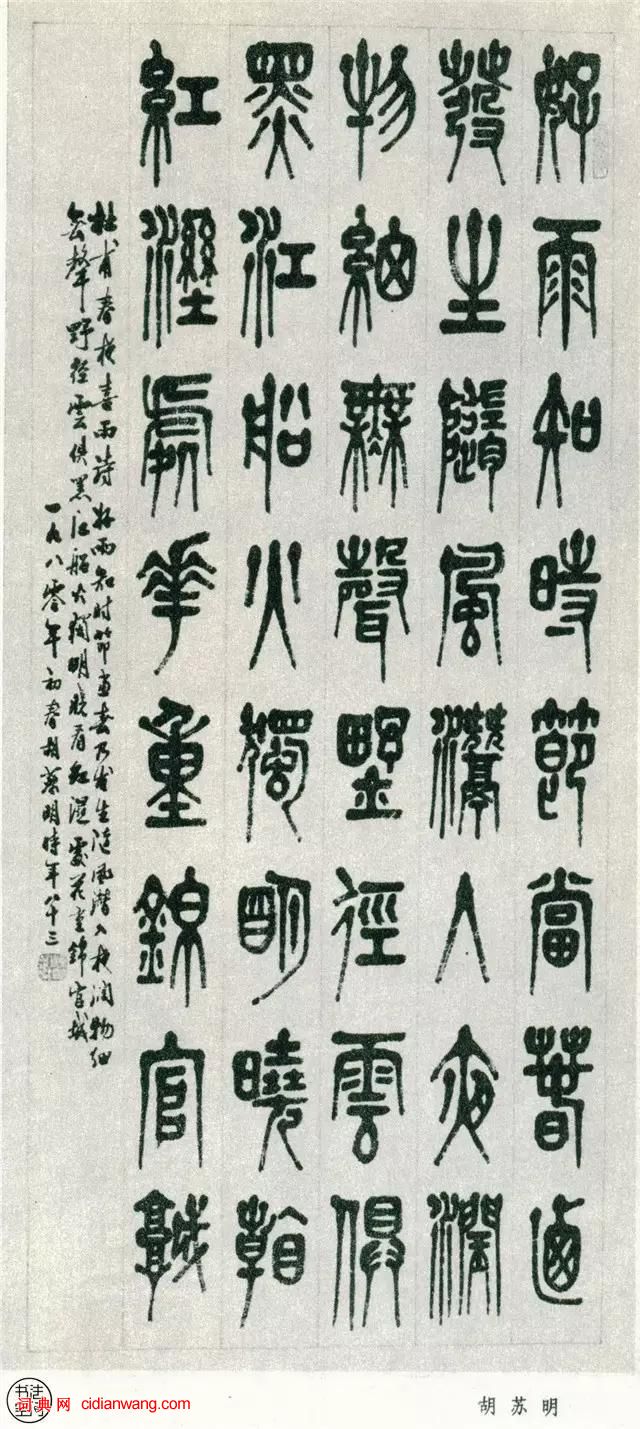 好雨知時節當春迺
發生隨風潛入夜潤
物細無聲野徑雲俱
黑江船火獨明曉看
紅溼處花重錦官城
杜甫春夜喜雨詩 好雨知时節當春乃發生隨風潜入夜潤物細
無聲野徑雲俱黑江船火獨明曉看紅濕處花重錦官城
一九八零年初春胡蘇明時年八十三
词典网 cidianwang.com
胡苏明